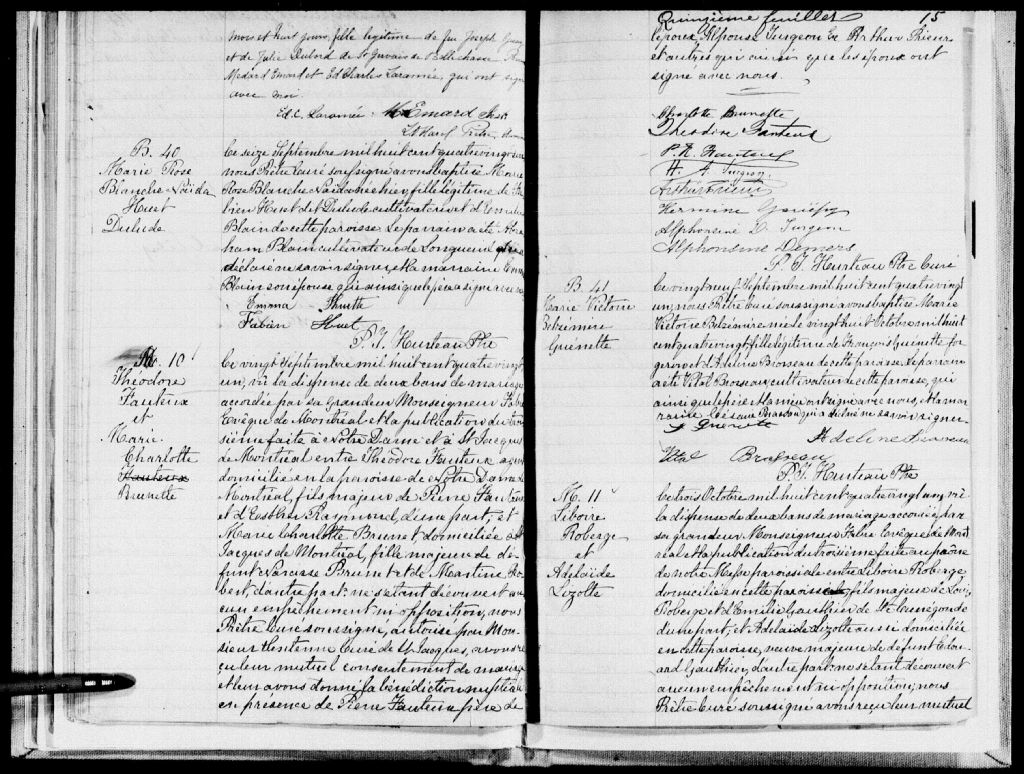 mois et huit jours, fille légitime de feu Joseph
et de Julie Dubord de St Gervais de Bellechasse
Médard Emard et Ed. Charles Laramée, qui ont signé
avec moi.
Ed. C. Laramée M Emard
Ptre
B. 40
Marie Rose
Blanche Naïda
Huet
Dulude
Ce seize Septembre mil huit cent quatre vingt un
nous Prêtre Curé soussigné avons baptisé Marie
Rose Blanche Naïda née hier, fille légitime de Fa
bien Huet dit Dulude cultivateur et d'Emélie
Blain de cette paroisse. Le parrain a été Abra
ham Blain cultivateur de Longueuil qui a
déclaré ne savoir signer, et la marraine Emma
son épouse qui ainsi que le père a signé avec nous
Emma
Fabien Huet
P. I. Hurteau Ptre
M. 10
Théodore
Fauteux
et
Marie
Charlotte
Fauteux
Brunette
Ce vingt Septembre mil huit cent quatre vingt
un, vu la dispense de deux bans de mariage
accordée par sa Grandeur Monseigneur Fabre
Evêque de Montréal et la publication du troi
sième faite à Notre Dame et à St Jacques
de Montréal entre Théodore Fauteux
domicilié en la paroisse de Notre Dame de
Montréal, fils majeur de Pierre Fauteux
et d'Esther Raymond, d'une part, et
Marie Charlotte Brunet, domiciliée à St
Jacques de Montréal, fille majeure de dé
funt Narcisse Brunet et de Martine Ro
bert, d'autre part: ne s'étant découvert au
cun empêchement ni opposition, nous
Prêtre Curé soussigné, autorisé par Mon
sieur Sentenne Curé de St Jacques, avons re
çu leur mutuel consentement de mariage
et leur avons donné la bénédiction nuptiale
en présence de Pierre Fauteux père de
Quinzième feuillet 15
l'époux, Alphonse Turgeon & Arthur Prieur
et autres qui ainsi que les époux ont
signé avec nous.
Charlotte Brunette
Théodore Fauteux
P. R. Fauteux
H. A. Turgeon
Arthur Prieur
Hermine
Alphonsine D. Turgeon
Alphonsine Demers
P. I. Hurteau Ptre Curé
B. 41
Marie Victoire
Belzémire
Guenette
Ce vingt neuf Septembre mil huit cent quatre vingt
un, nous Prêtre Curé soussigné avons baptisé Marie
Victoire Belzémire née le vingt huit Octobre mil huit
cent quatre vingt, fille légitime de François Guenette for
geron et d'Adeline Brosseau de cette paroisse. Le parrain
a été Vital Brosseau cultivateur de cette paroisse, qui
ainsi que le père et la mère ont signé avec nous, et la mar
raine Césarie Brosseau qui a déclaré ne savoir signer
Guenette
Adeline
Vital Brosseau
P. I. Hurteau Ptre
M. 11
Liboire
Roberge
et
Adelaïde
Lizotte
Ce trois Octobre mil huit cent quatre vingt un, vû
la dispense de deux bans de mariage accordée par
sa grandeur Monseigneur Fabre Evêque de Mont
réal et la publication du troisième faite au prône
de notre Messe paroissiale entre Liboire Roberge
domicilié en cette paroisse, fils majeur de Louis
Roberge et d'Emilie Gauthier de Ste Cunégonde
d'une part, et Adelaïde Lizotte aussi domiciliée
en cette paroisse, veuve majeure de défunt Edou
ard Gauthier, d'autre part: ne s'étant découvert
aucun empêchement ni opposition, nous
Prêtre Curé soussigné avons reçu leur mutuel